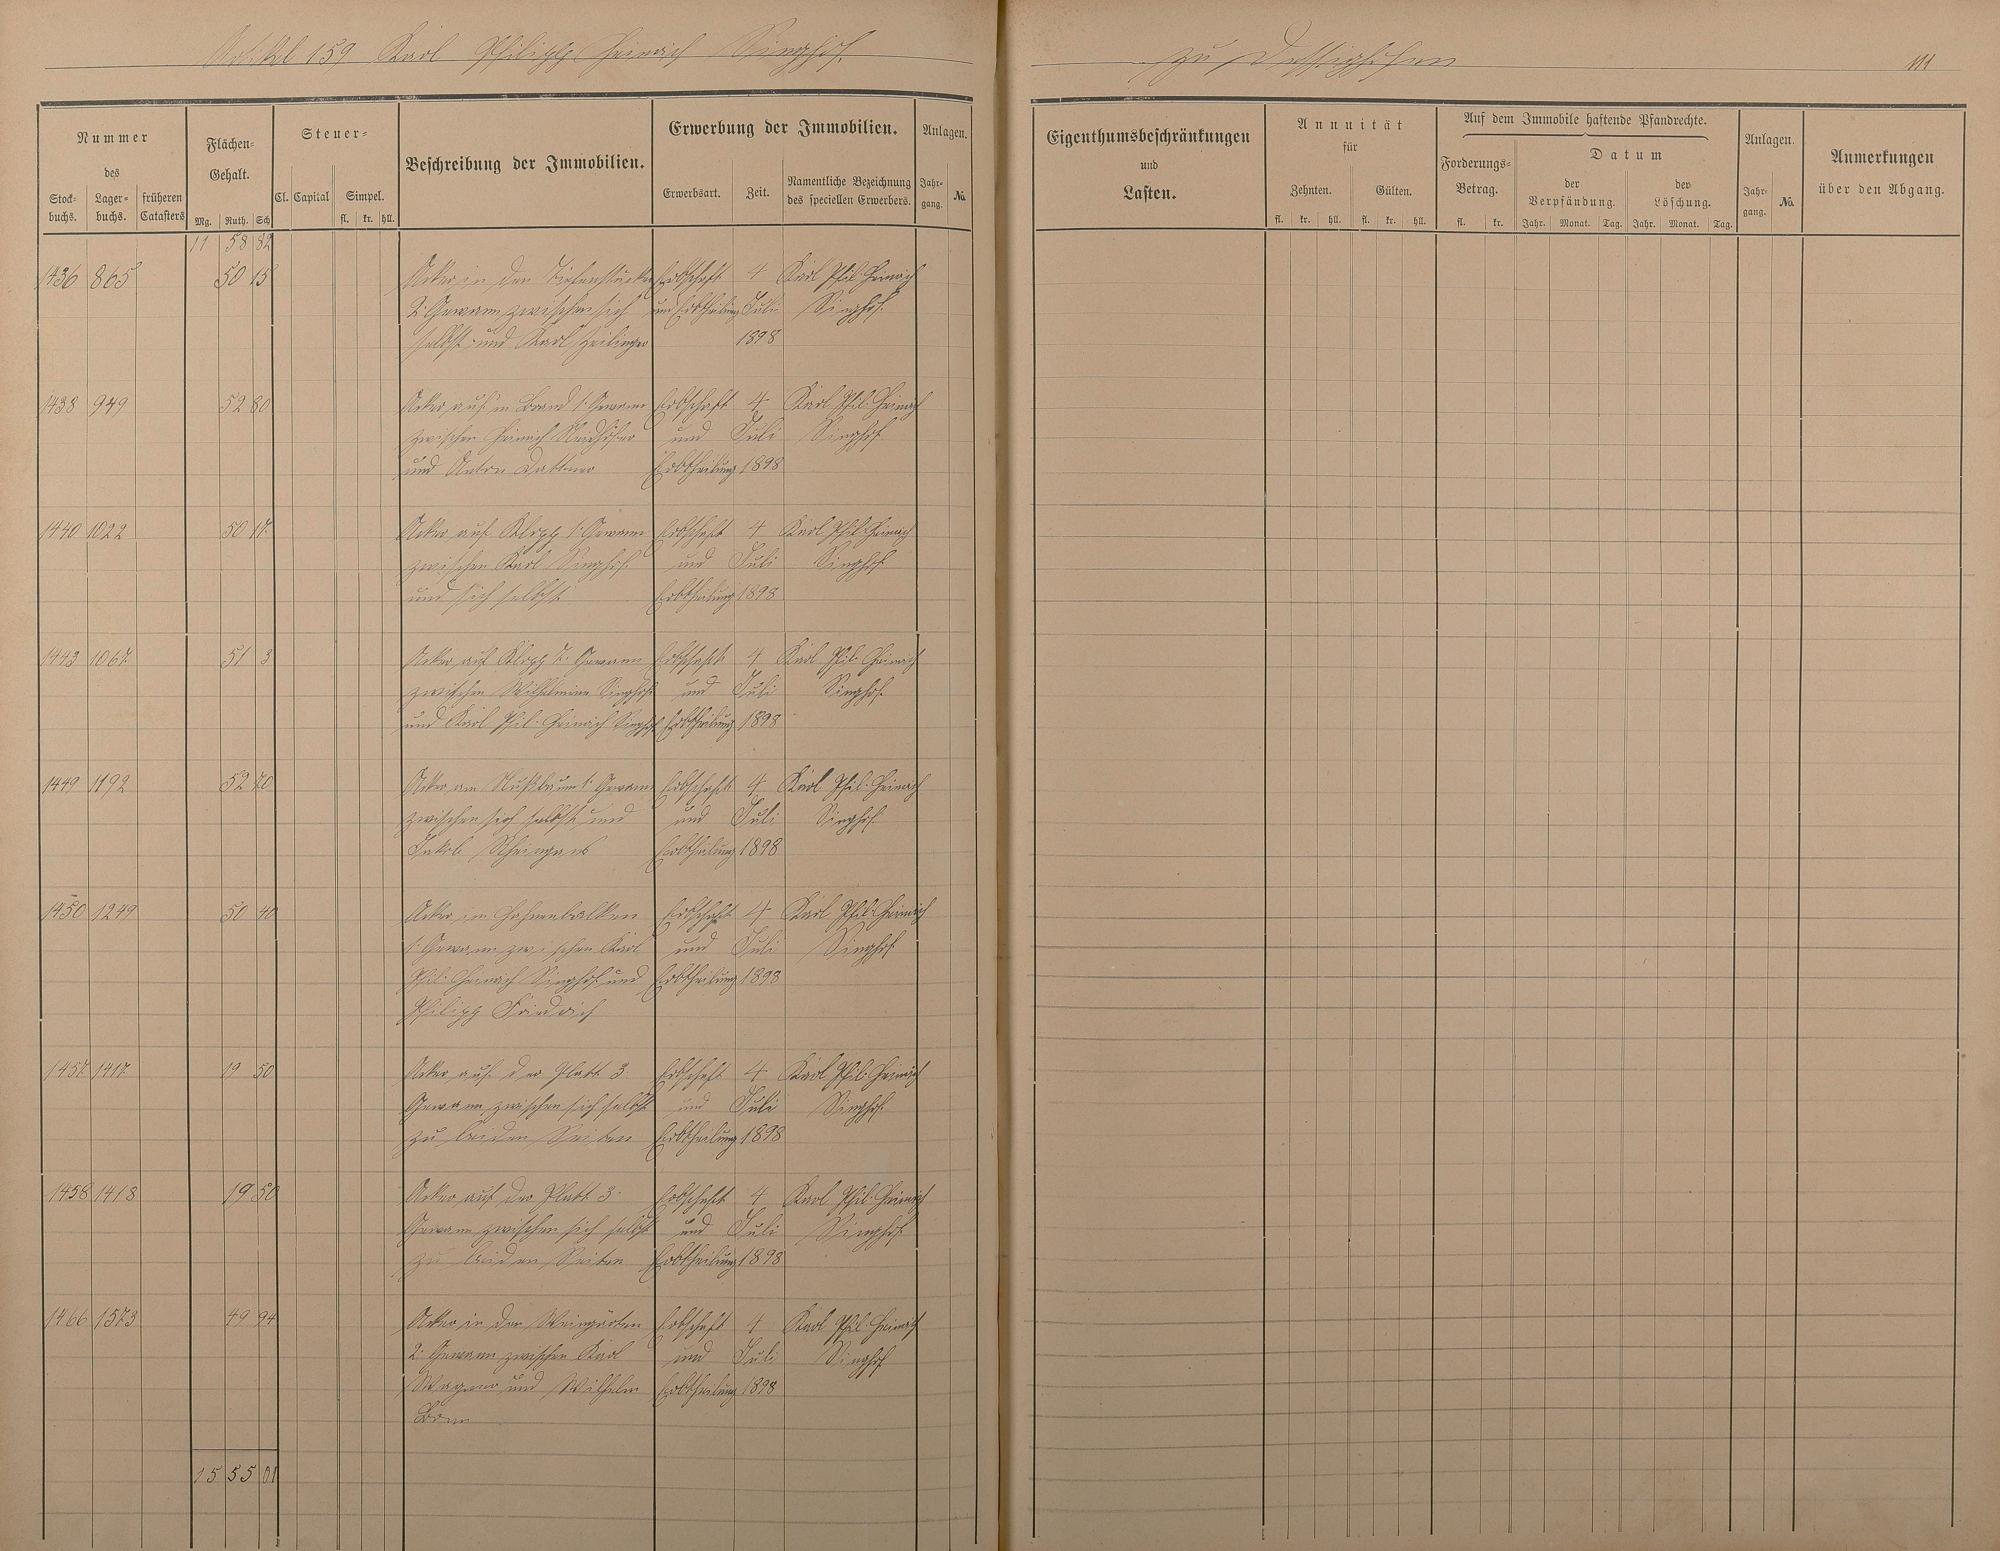 Artikel 159 Karl Philipp Heinrich Singhof
zu Dasbach
111
Nummer
des
Stock-
buchs.
Lager-
buchs.
früheren
Catasters
Flächen-
Gehalt.
Mg. Ruth. Sch
Steuer-
Cl. Capital Simpel.
fl. kr. hll.
Beschreibung der Immobilien.
Erwerbung der Immobilien.
Erwerbsart. Zeit.
Namentliche Bezeichnung
des speciellen Erwerbers.
Anlagen.
Jahr-
gang. No.
Eigenthumsbeschränkungen
und
Lasten.
Annuität
für
Zehnten. Gülten.
fl. kr. hll. fl. kr. hll.
Auf dem Immobile haftende Pfandrechte.
Forderungs-
Betrag.
fl. kr.
Datum
der
Verpfändung.
der
Löschung.
Jahr. Monat. Tag. Jahr. Monat. Tag.
Anlagen.
Jahr-
gang. No.
Anmerkungen
über den Abgang.
11 58 82
1436 865 50 15 Acker in den Tiefenstücker Erbschaft 4 Karl Phil. Heinrich
2 Gewann zwischen sich und Erbtheilung Juli Singhof
selbst und Karl 1898
1438 949 52 80 Acker auf'm Brand 1. Gewann Erbschaft 4 Karl Phil. Heinrich
zwischen Heinrich und Juli Singhof
und Anton Dattner Erbtheilung 1898
1440 1022 50 17 Acker auf Klopp 1. Gewann Erbschaft 4 Karl Phil. Heinrich
zwischen Karl Singhof und Juli Singhof
und sich selbst Erbtheilung 1898
1443 1067 51 3 Acker auf Klopp 2. Gewann Erbschaft 4 Karl Phil. Heinrich
zwischen Wilhelmine Singhof und Juli Singhof
und Karl Phil. Heinrich Singhof Erbtheilung 1898
1449 1192 52 70 Acker am Nußbaum 1. Gewann Erbschaft 4 Karl Phil. Heinrich
zwischen sich selbst und und Juli Singhof
Jakob Erbtheilung 1898
1450 1249 50 40 Acker im Hahnenbalken Erbschaft 4 Karl Phil. Heinrich
1. Gewann zwischen Karl und Juli Singhof
Phil. Heinrich Singhof und Erbtheilung 1898
Philipp Friedrich
1457 1417 19 50 Acker auf der Platt 3. Erbschaft 4 Karl Phil. Heinrich
Gewann zwischen sich selbst und Juli Singhof
zu beiden Seiten Erbtheilung 1898
1458 1418 19 50 Acker auf der Platt 3. Erbschaft 4 Karl Phil. Heinrich
Gewann zwischen sich selbst und Juli Singhof
zu beiden Seiten Erbtheilung 1898
1466 1573 49 94 Acker in den Weingärten Erbschaft 4 Karl Phil. Heinrich
2. Gewann zwischen Karl und Juli Singhof
Wagner und Wilhelm Erbtheilung 1898
Born
15 55 01